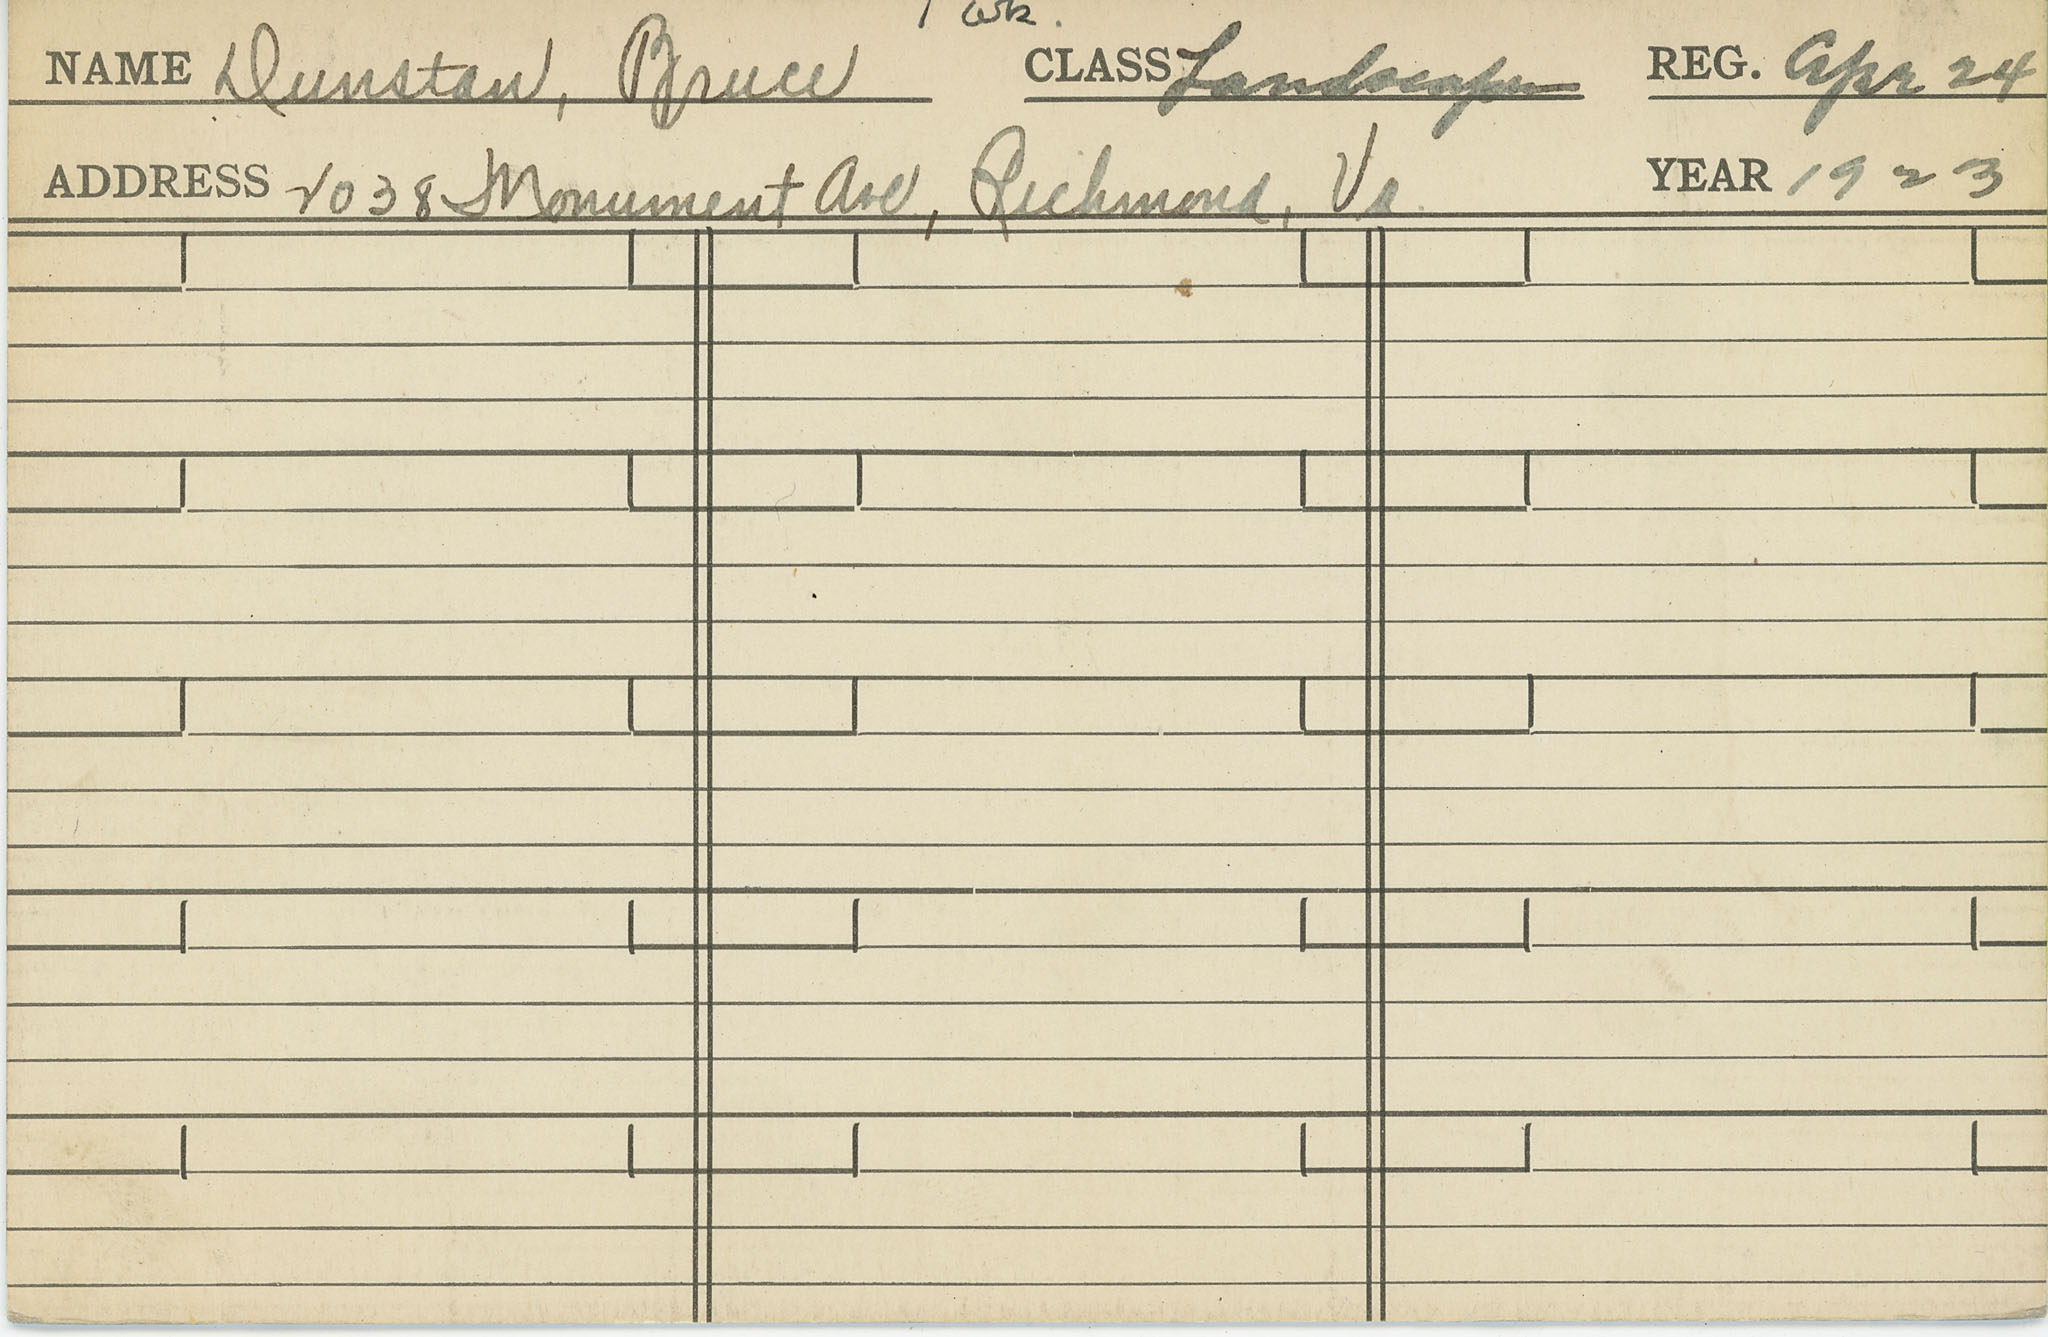 1 wk.
NAME Dunstan, Bruce CLASS Landscape REG. Apr 24
ADDRESS 2038 Monument Ave, Richmond, Va. YEAR 1923